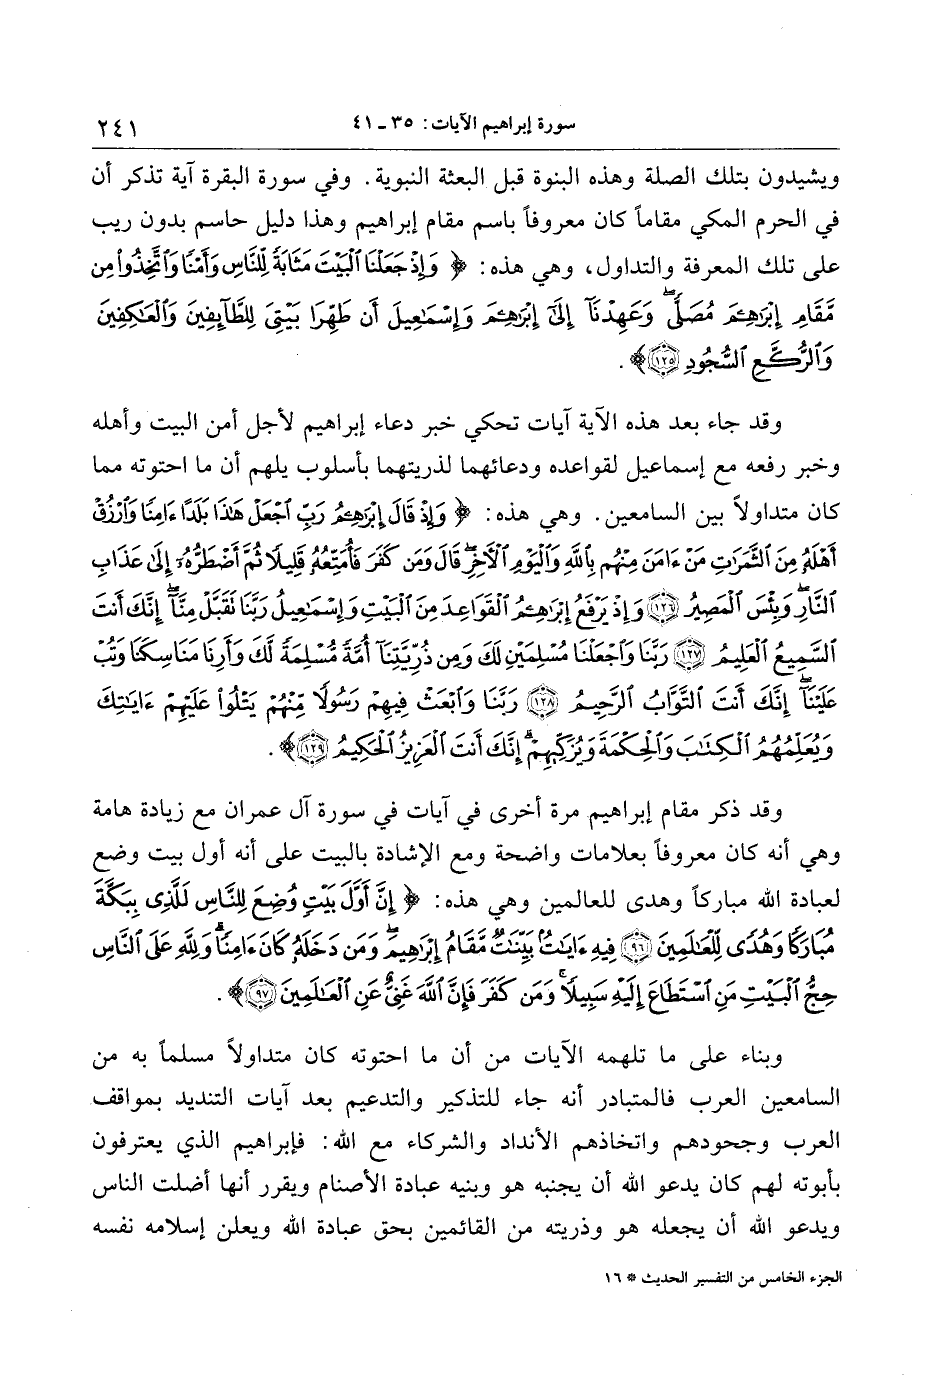 سورة إبراهيم الآيات: ٣٥ ـ ٤١
٢٤١
ويشيدون بتلك الصلة وهذه البنوة قبل البعثة النبوية. وفي سورة البقرة آية تذكر أن
في الحرم المكي مقاماً كان معروفاً باسم مقام إبراهيم وهذا دليل حاسم بدون ريب
على تلك المعرفة والتداول، وهي هذه: ﴿ وَإِذْ جَعَلْنَا ٱلْبَيْتَ مَثَابَةً لِّلنَّاسِ وَأَمْنًا وَٱتَّخِذُوا۟ مِن
مَّقَامِ إِبْرَٰهِـۧمَ مُصَلًّى ۖ وَعَهِدْنَآ إِلَىٰٓ إِبْرَٰهِـۧمَ وَإِسْمَٰعِيلَ أَن طَهِّرَا بَيْتِىَ لِلطَّآئِفِينَ وَٱلْعَٰكِفِينَ
وَٱلرُّكَّعِ ٱلسُّجُودِ ١٢٥﴾.
وقد جاء بعد هذه الآية آيات تحكي خبر دعاء إبراهيم لأجل أمن البيت وأهله
وخبر رفعه مع إسماعيل لقواعده ودعائهما لذريتهما بأسلوب يلهم أن ما احتوته مما
كان متداولاً بين السامعين. وهي هذه: ﴿ وَإِذْ قَالَ إِبْرَٰهِـۧمُ رَبِّ ٱجْعَلْ هَٰذَا بَلَدًا ءَامِنًا وَٱرْزُقْ
أَهْلَهُۥ مِنَ ٱلثَّمَرَٰتِ مَنْ ءَامَنَ مِنْهُم بِٱللَّهِ وَٱلْيَوْمِ ٱلْءَاخِرِ ۖ قَالَ وَمَن كَفَرَ فَأُمَتِّعُهُۥ قَلِيلًا ثُمَّ أَضْطَرُّهُۥٓ إِلَىٰ عَذَابِ
ٱلنَّارِ ۖ وَبِئْسَ ٱلْمَصِيرُ ١٢٦ وَإِذْ يَرْفَعُ إِبْرَٰهِـۧمُ ٱلْقَوَاعِدَ مِنَ ٱلْبَيْتِ وَإِسْمَٰعِيلُ رَبَّنَا تَقَبَّلْ مِنَّآ ۖ إِنَّكَ أَنتَ
ٱلسَّمِيعُ ٱلْعَلِيمُ ١٢٧ رَبَّنَا وَٱجْعَلْنَا مُسْلِمَيْنِ لَكَ وَمِن ذُرِّيَّتِنَآ أُمَّةً مُّسْلِمَةً لَّكَ وَأَرِنَا مَنَاسِكَنَا وَتُبْ
عَلَيْنَآ ۖ إِنَّكَ أَنتَ ٱلتَّوَّابُ ٱلرَّحِيمُ ١٢٨ رَبَّنَا وَٱبْعَثْ فِيهِمْ رَسُولًا مِّنْهُمْ يَتْلُوا۟ عَلَيْهِمْ ءَايَٰتِكَ
وَيُعَلِّمُهُمُ ٱلْكِتَٰبَ وَٱلْحِكْمَةَ وَيُزَكِّيهِمْ ۚ إِنَّكَ أَنتَ ٱلْعَزِيزُ ٱلْحَكِيمُ ١٢٩﴾.
وقد ذكر مقام إبراهيم مرة أخرى في آيات في سورة آل عمران مع زيادة هامة
وهي أنه كان معروفاً بعلامات واضحة ومع الإشادة بالبيت على أنه أول بيت وضع
لعبادة الله مباركاً وهدى للعالمين وهي هذه: ﴿ إِنَّ أَوَّلَ بَيْتٍ وُضِعَ لِلنَّاسِ لَلَّذِى بِبَكَّةَ
مُبَارَكًا وَهُدًى لِّلْعَٰلَمِينَ ٩٦ فِيهِ ءَايَٰتٌۢ بَيِّنَٰتٌ مَّقَامُ إِبْرَٰهِيمَ ۖ وَمَن دَخَلَهُۥ كَانَ ءَامِنًا ۗ وَلِلَّهِ عَلَى ٱلنَّاسِ
حِجُّ ٱلْبَيْتِ مَنِ ٱسْتَطَاعَ إِلَيْهِ سَبِيلًا ۚ وَمَن كَفَرَ فَإِنَّ ٱللَّهَ غَنِىٌّ عَنِ ٱلْعَٰلَمِينَ ٩٧﴾.
وبناء على ما تلهمه الآيات من أن ما احتوته كان متداولاً مسلماً به من
السامعين العرب فالمتبادر أنه جاء للتذكير والتدعيم بعد آيات التنديد بمواقف
العرب وجحودهم واتخاذهم الأنداد والشركاء مع الله: فإبراهيم الذي يعترفون
بأبوته لهم كان يدعو الله أن يجنبه هو وبنيه عبادة الأصنام ويقرر أنها أضلت الناس
ويدعو الله أن يجعله هو وذريته من القائمين بحق عبادة الله ويعلن إسلامه نفسه
الجزء الخامس من التفسير الحديث * ١٦